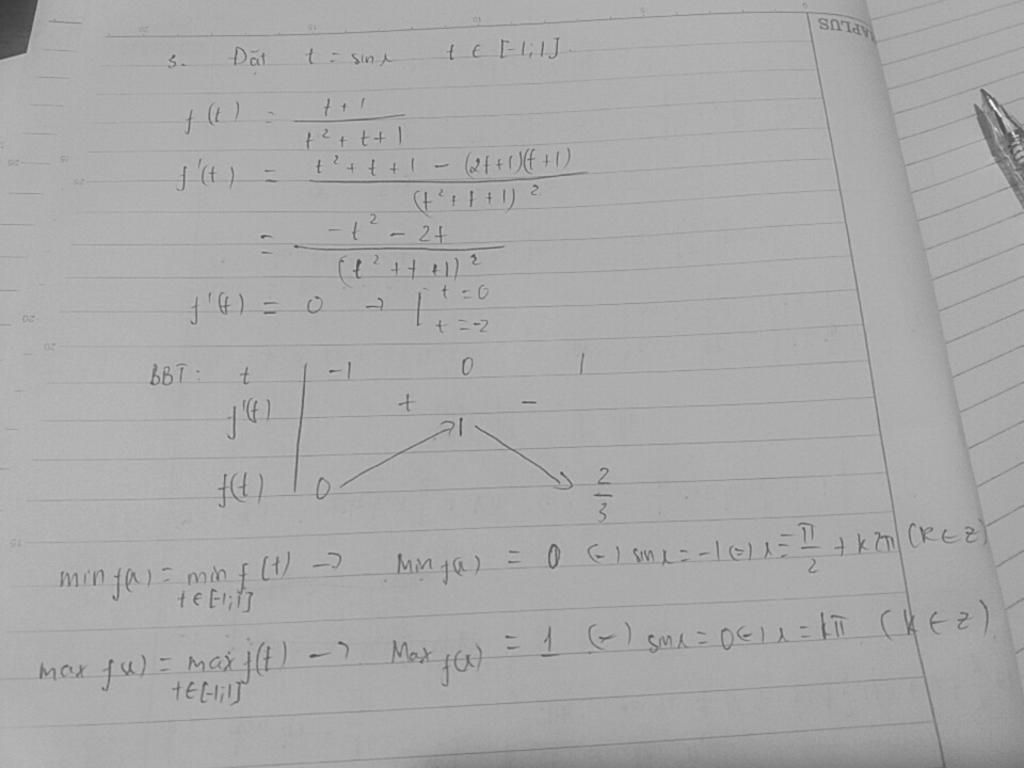 3. Đặt t = sinx t ∈ [-1;1]
f(t) = \frac{t+1}{t² + t + 1}
f'(t) = \frac{t² + t + 1 - (2t+1)(t+1)}{(t² + t + 1)²}
= \frac{-t² - 2t}{(t² + t + 1)²}
f'(t) = 0 → [ t = 0
t = -2
BBT: t | -1 0 1
f'(t) + -
1
f(t) 0 \frac{2}{3}
min f(x) = min f(t) → Min f(x) = 0 (=) sinx = -1 (=) x = \frac{π}{2} + k2π (k ∈ Z)
t∈[-1;1]
max f(x) = max f(t) → Max f(x) = 1 (=) sinx = 0 (=) x = kπ (k ∈ Z)
t∈[-1;1]